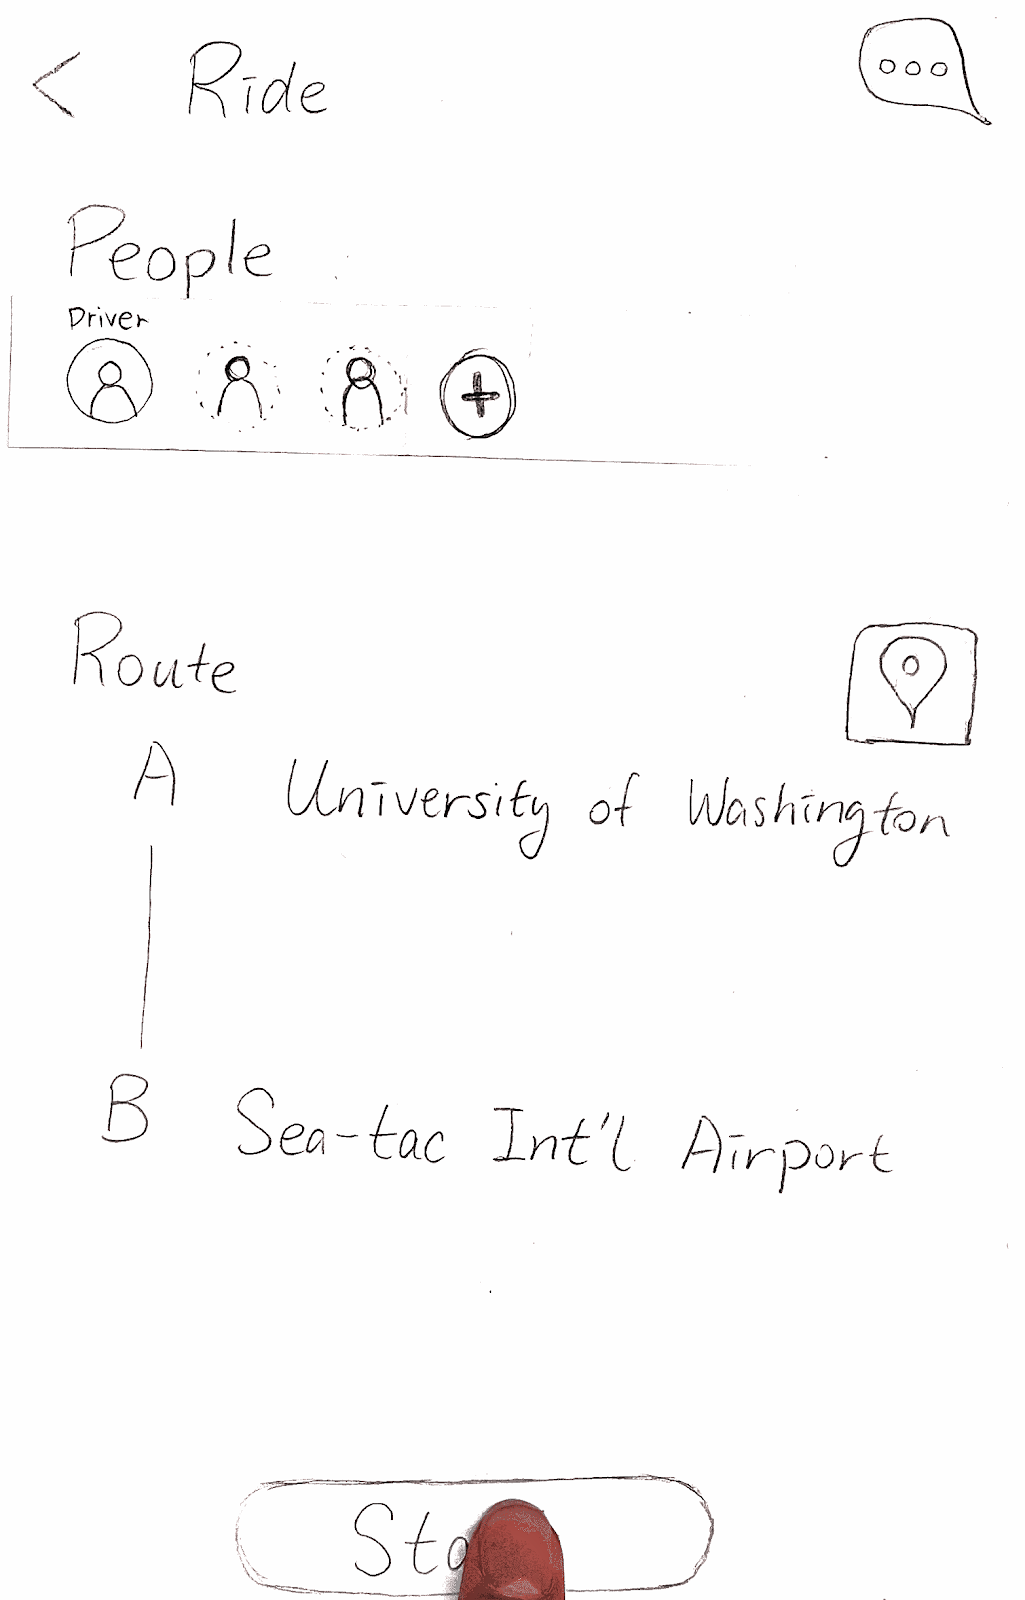 < Ride
People
Driver
Route
A University of Washington
B Sea-tac Int'l Airport